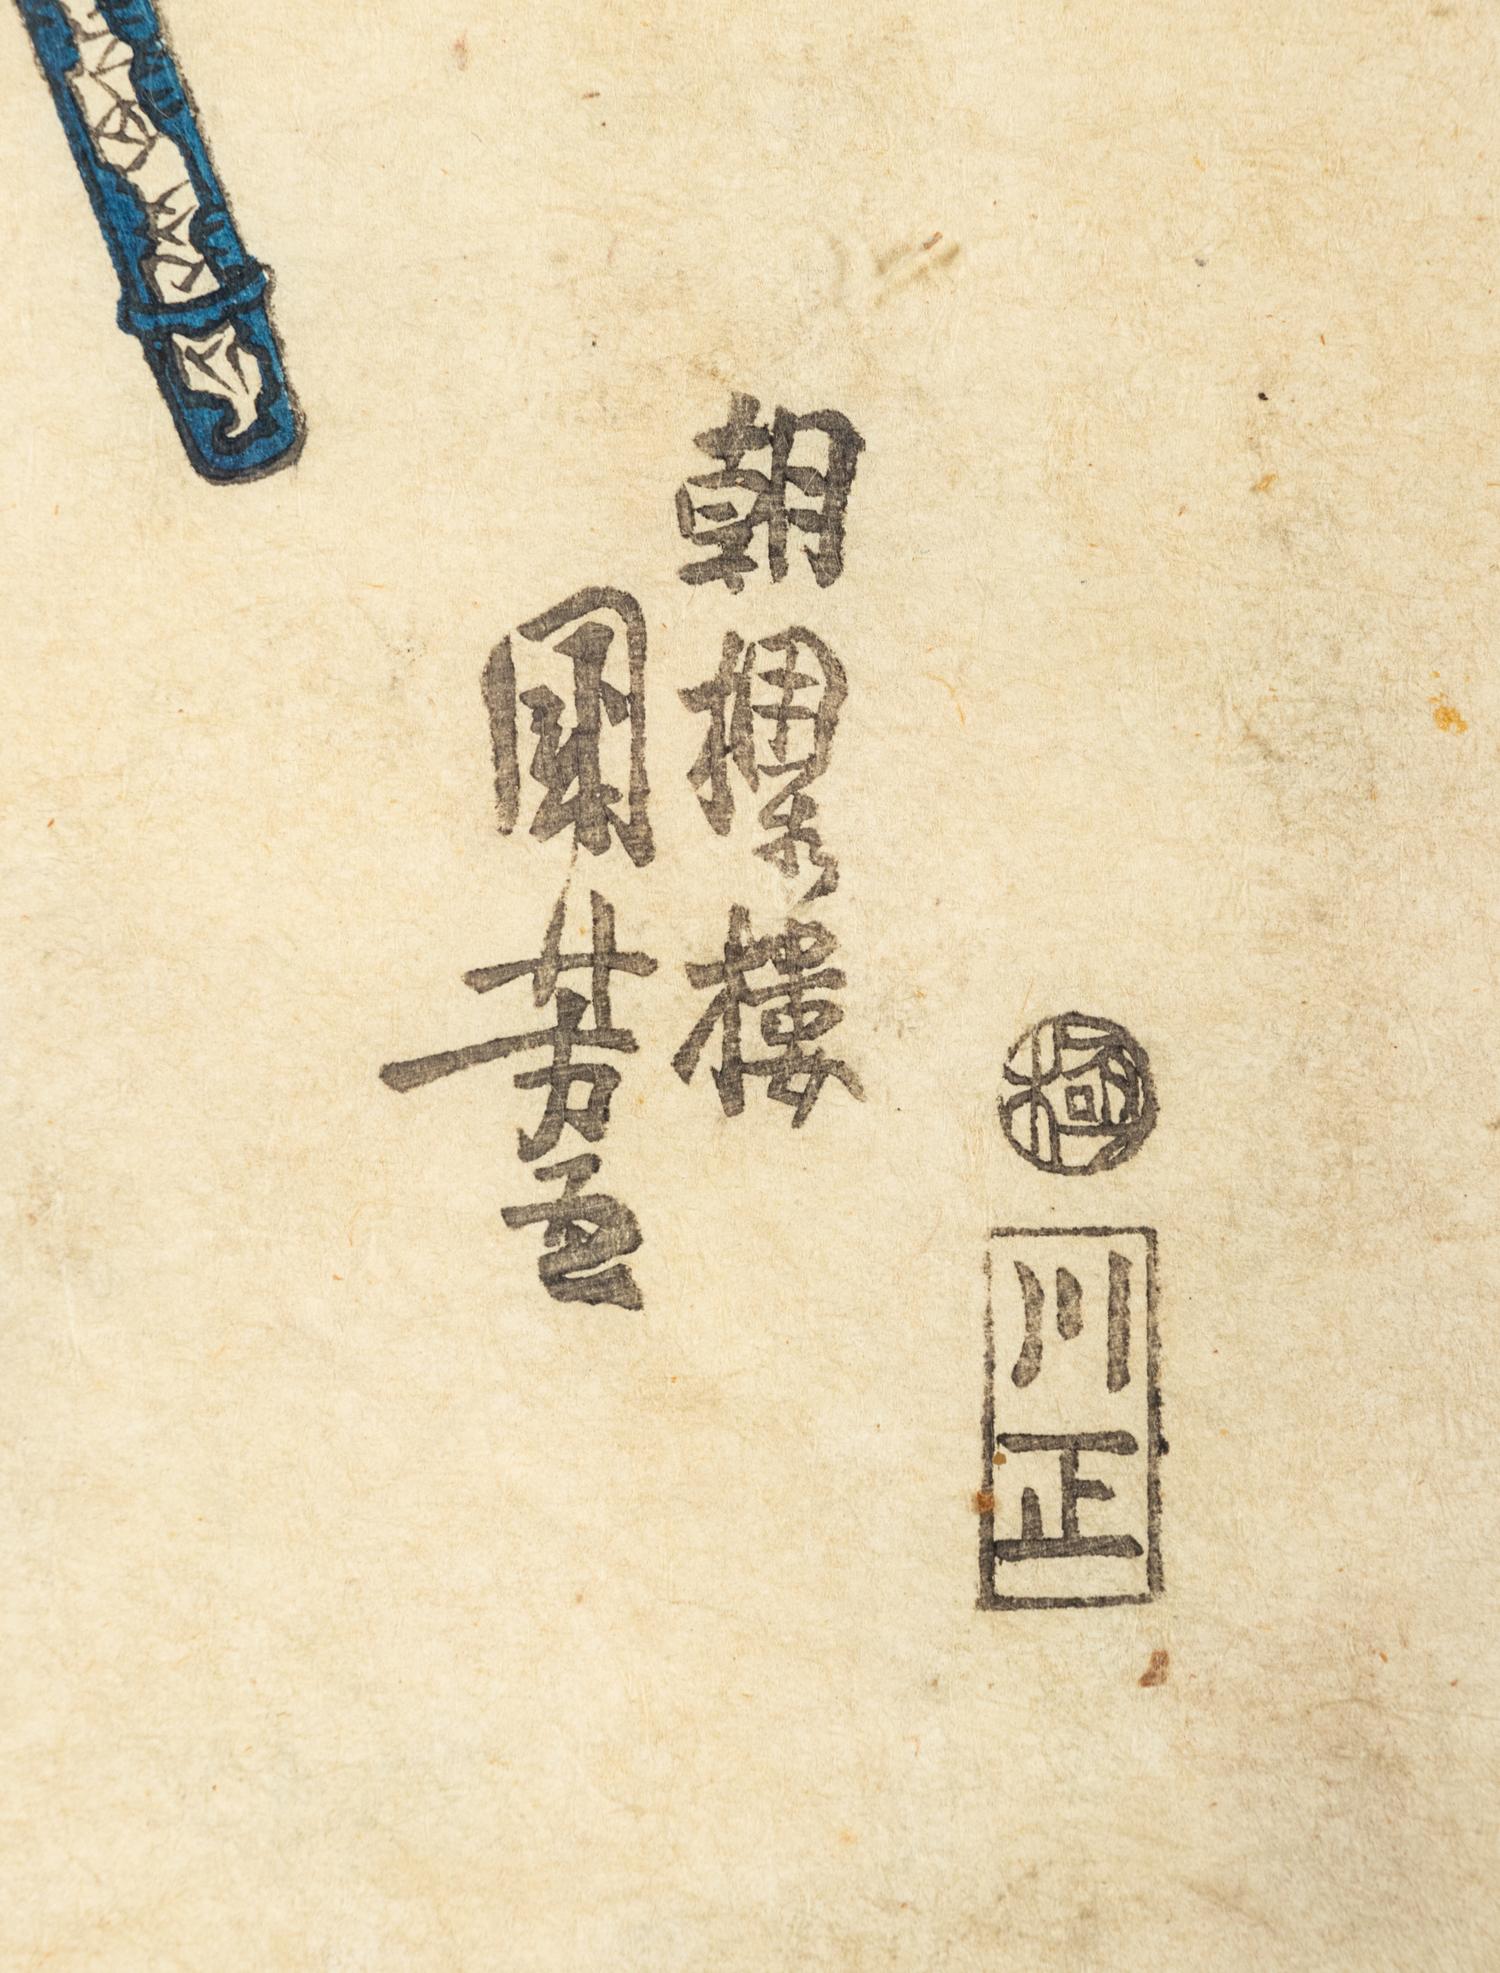 極
川正
朝櫻樓
國芳画